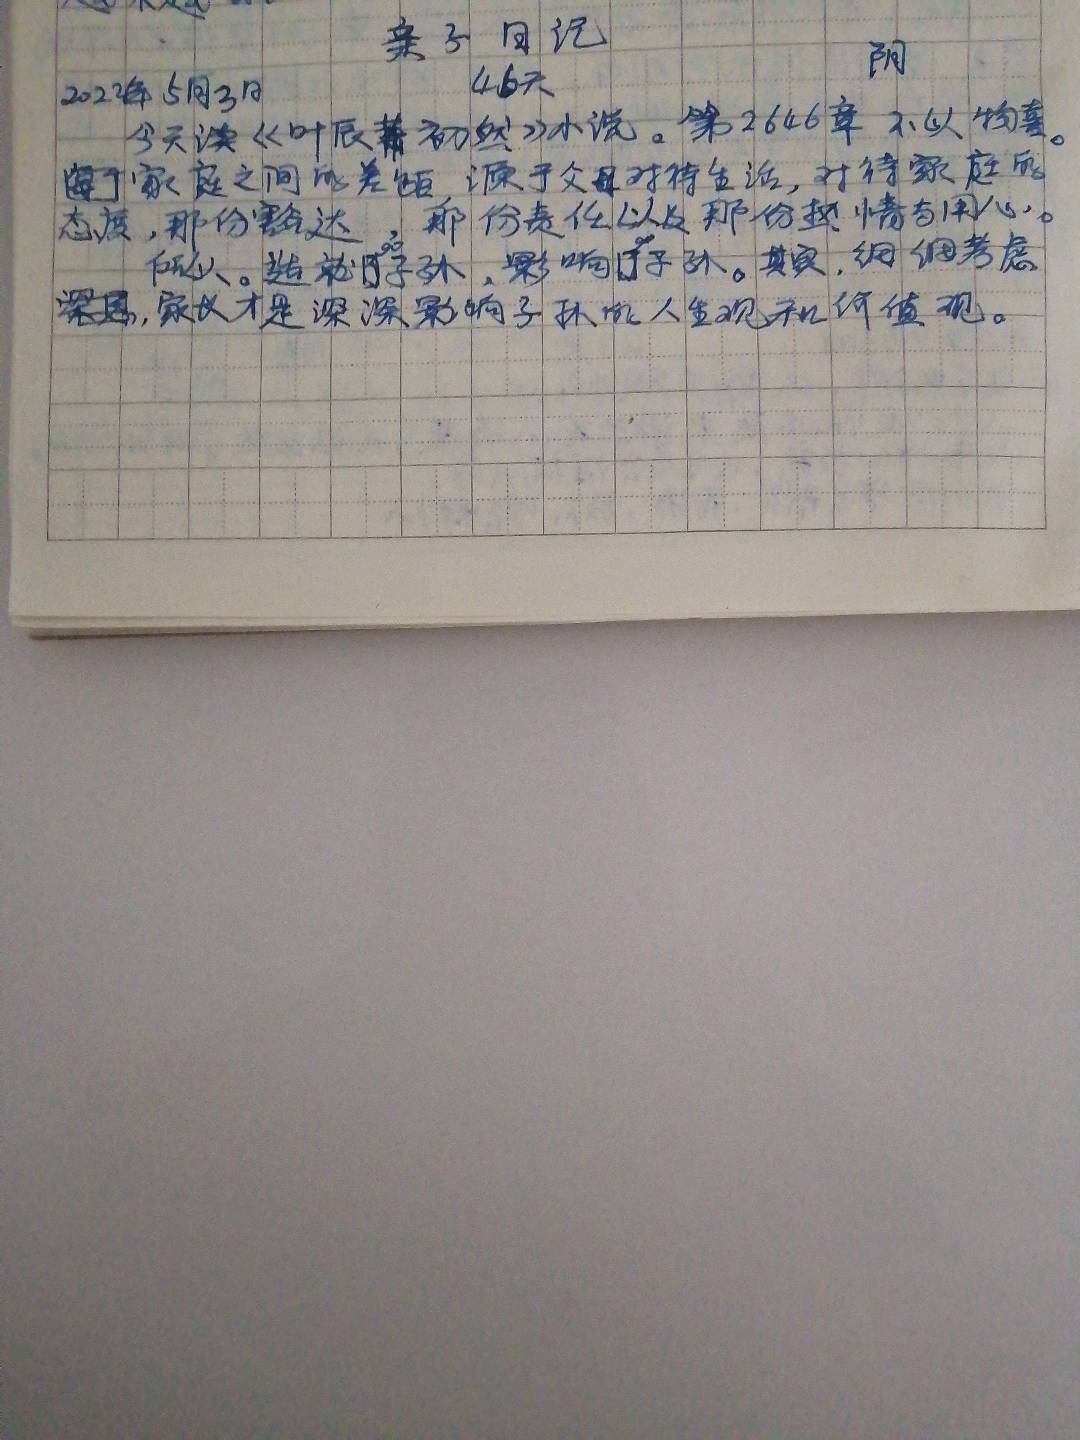 亲子日记
阴
2022年5月3日 46天
今天读《叶辰萧初然》小说。第2646章 不以物喜。
每个家庭之间的差距,源于父母对待生活,对待家庭的
态度,那份豁达,那份责任以及那份热情与用心。
所以。造就了子孙,影响了子孙。其实,细细考虑
深思,家长才是深深影响子孙的人生观和价值观。